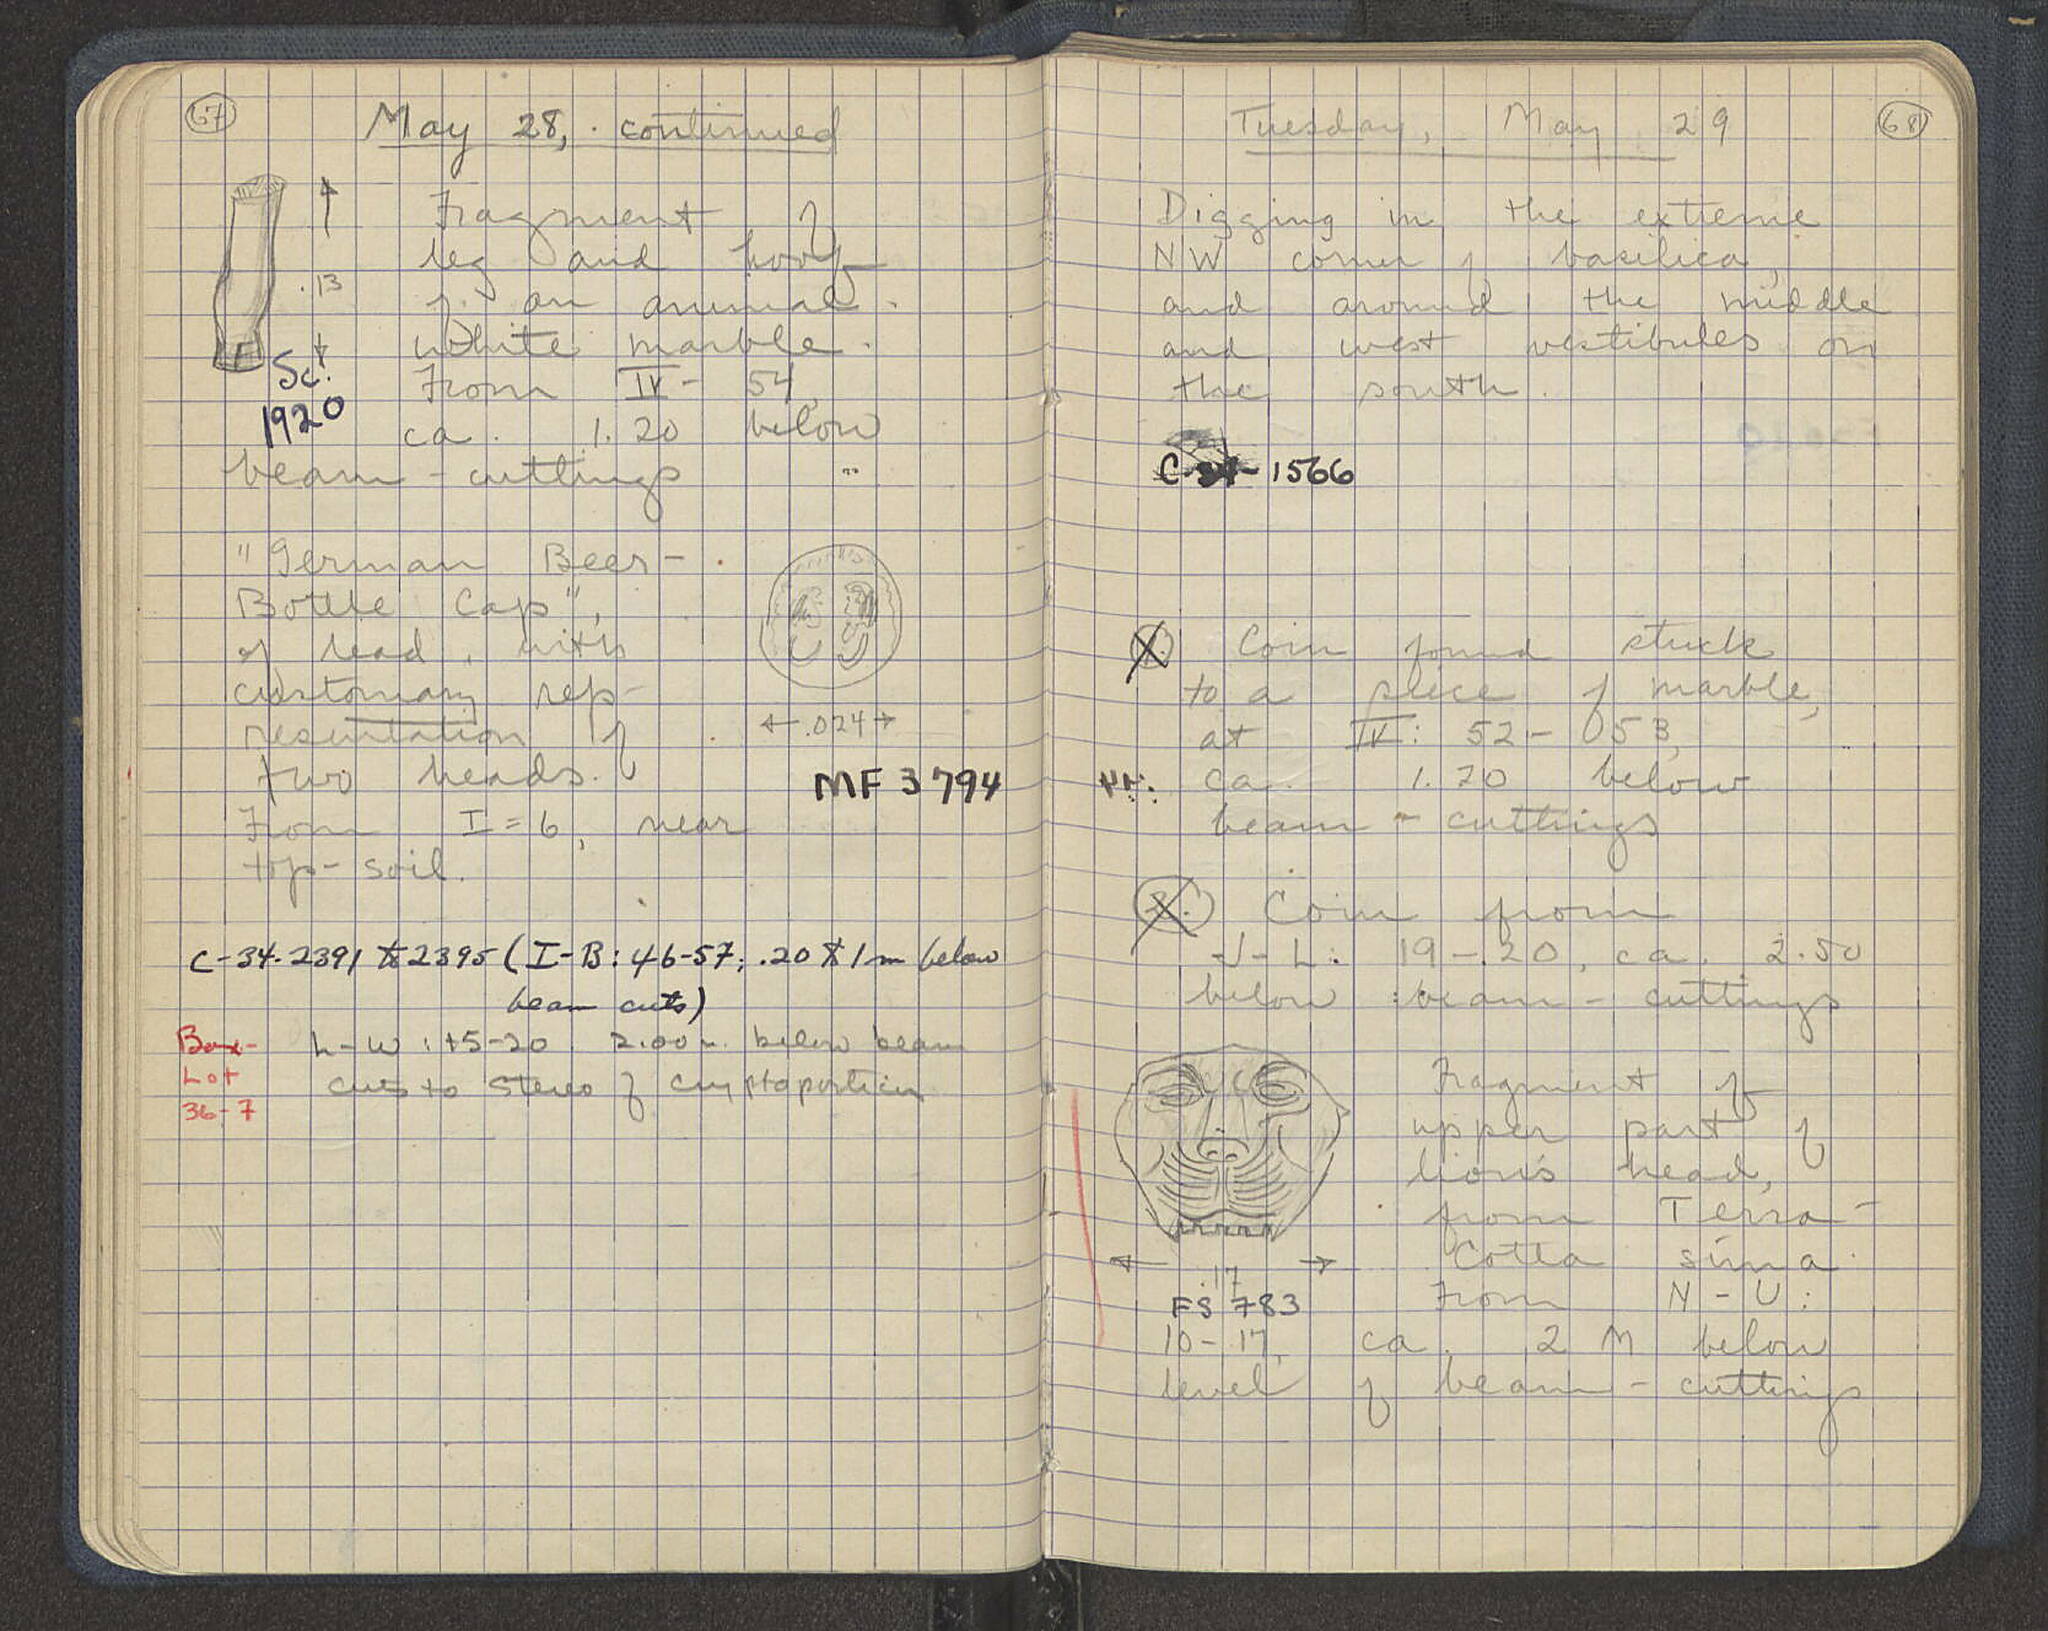 67
May 28, continued
Fragment of
leg and hoof
of an animal.
.13
white marble.
Sc.
1920
From IV - 54,
ca. 1.20 below
beam - cuttings
"German Beer-
Bottle Cap",
of lead, with
customary rep-
resentation of
.024
two heads.
MF 3794
From I = 6, near
top-soil.
C-34-2391 to 2395 (I-B: 46-57; .20 to 1m below
beam cuts)
Box- L-W: +5-20 2.00 m. below beam
Lot cuts to stereo of cryptoporticus
36-7
Tuesday, May 29
68
Digging in the extreme
NW corner of basilica,
and around the middle
and west vestibules on
the south.
C-34-1566
1. Coin found stuck
to a piece of marble,
at IV: 52-53,
ca. 1.20 below
beam - cuttings
2. Coin from
J-L: 19-20, ca. 2.50
below beam - cuttings
Fragment of
upper part of
lion's head,
from Terra-
Cotta sima.
.17
FS 783
From N-U:
10-17, ca. 2 M below
level of beam - cuttings